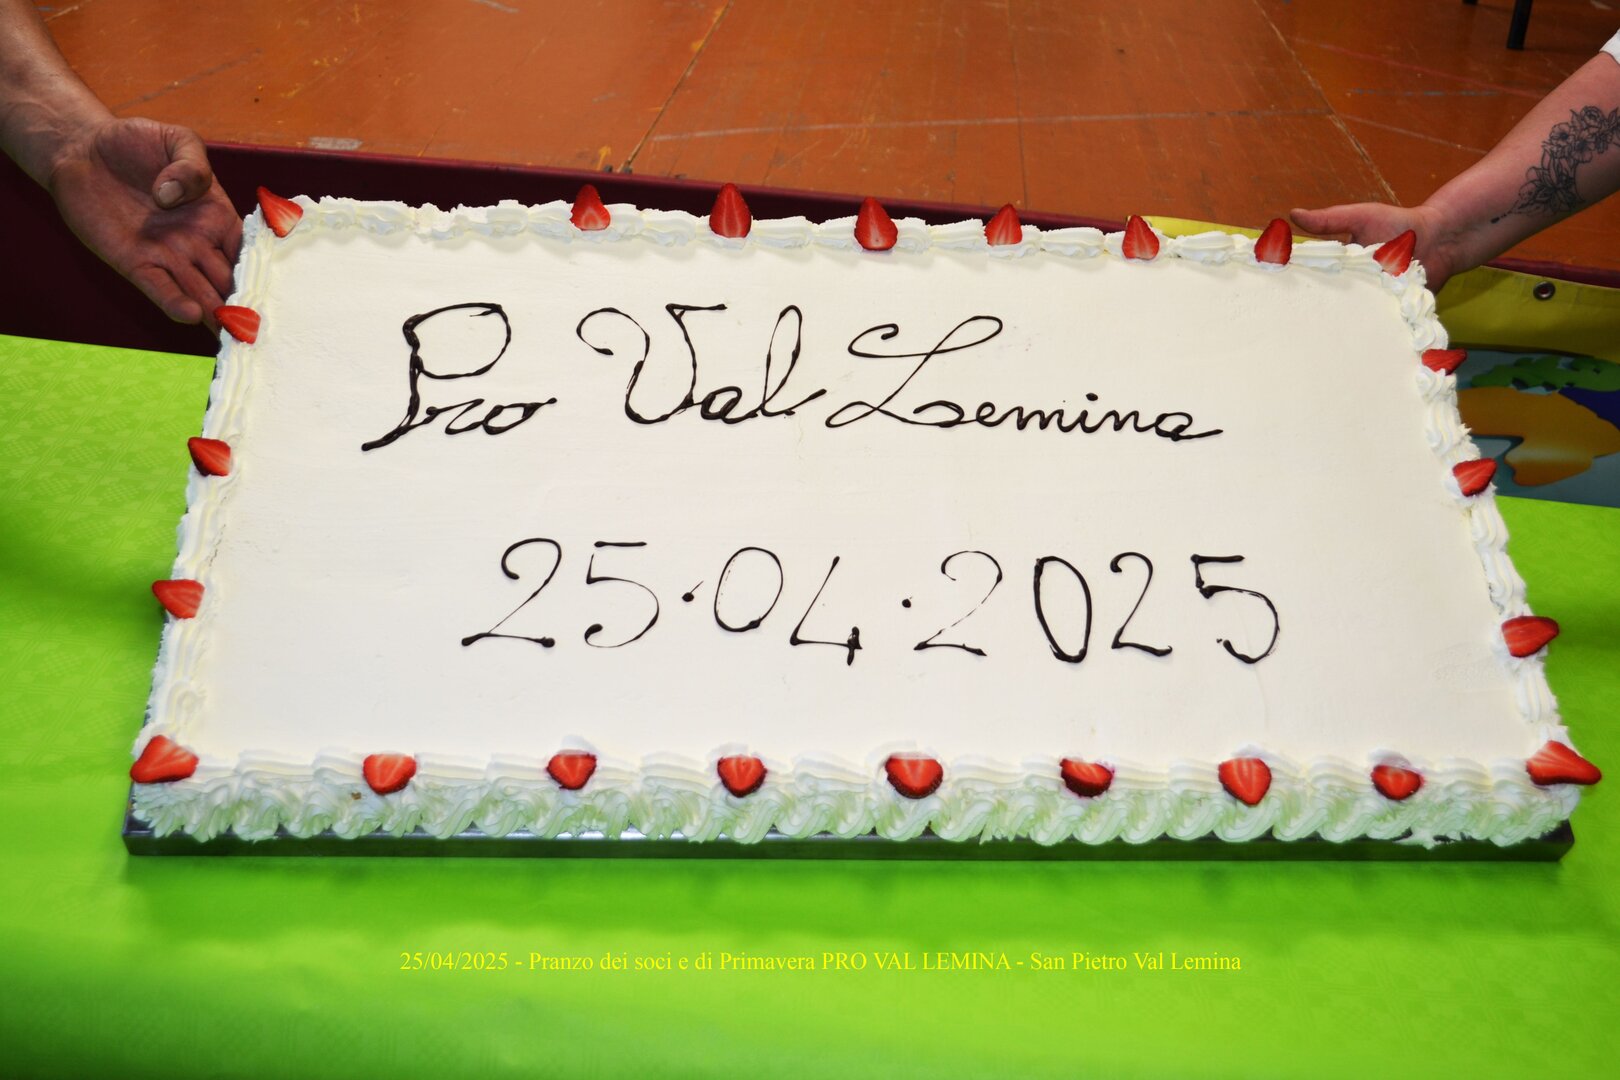 Pro Val Lemina
25.04.2025
25/04/2025 - Pranzo dei soci e di Primavera PRO VAL LEMINA - San Pietro Val Lemina